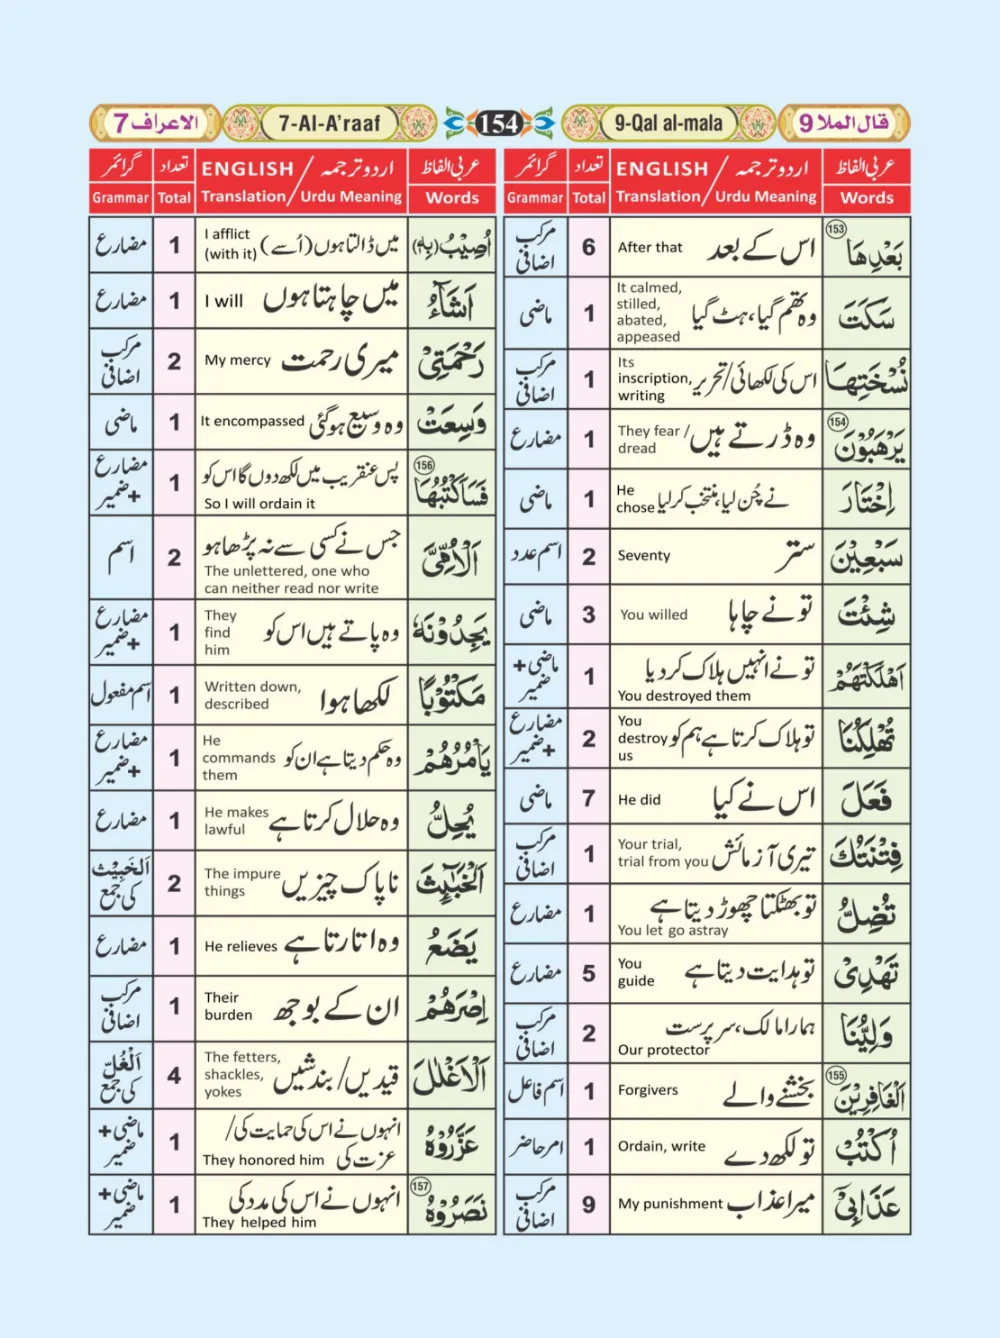 الاعراف 7
7-Al-A'raaf
154
9-Qal al-mala
قال الملا 9
عربی الفاظ Words
اردو ترجمہ / ENGLISH
Translation / Urdu Meaning
تعداد Total
گرائمر Grammar
بَعْدِهَا (153) اس کے بعد After that 6 مرکب اضافی
سَكَتَ وہ تھم گیا، ہٹ گیا It calmed, stilled, abated, appeased 1 ماضی
نُسْخَتِهَا اس کی لکھائی/تحریر Its inscription, writing 1 مرکب اضافی
يَرْهَبُوْنَ (154) وہ ڈرتے ہیں They fear / dread 1 مضارع
اِخْتَارَ نے چُن لیا، منتخب کرلیا He chose 1 ماضی
سَبْعِيْنَ ستر Seventy 2 اسم عدد
شِئْتَ تو نے چاہا You willed 3 ماضی
اَهْلَكْتَهُمْ تو نے انہیں ہلاک کردیا You destroyed them 1 ماضی + ضمیر
تُهْلِكُنَا تو ہلاک کرتا ہے ہم کو You destroy us 2 مضارع + ضمیر
فَعَلَ اس نے کیا He did 7 ماضی
فِتْنَتُكَ تیری آزمائش Your trial, trial from you 1 مرکب اضافی
تُضِلُّ تو بھٹکتا چھوڑ دیتا ہے You let go astray 1 مضارع
تَهْدِىْ تو ہدایت دیتا ہے You guide 5 مضارع
وَلِيُّنَا ہمارا مالک، سرپرست Our protector 2 مرکب اضافی
الْغَافِرِيْنَ (155) بخشنے والے Forgivers 1 اسم فاعل
اُكْتُبْ تو لکھ دے Ordain, write 1 امر حاضر
عَذَابِىْٓ میرا عذاب My punishment 9 مرکب اضافی
عربی الفاظ Words
اردو ترجمہ / ENGLISH
Translation / Urdu Meaning
تعداد Total
گرائمر Grammar
اُصِيْبُ (بِهٖ) میں ڈالتا ہوں (اُسے) I afflict (with it) 1 مضارع
اَشَآءُ میں چاہتا ہوں I will 1 مضارع
رَحْمَتِىْ میری رحمت My mercy 2 مرکب اضافی
وَسِعَتْ وہ وسیع ہوگئی It encompassed 1 ماضی
فَسَاَكْتُبُهَا (156) پس عنقریب میں لکھ دوں گا اس کو So I will ordain it 1 مضارع + ضمیر
اَلْاُمِّىَّ جس نے کسی سے نہ پڑھا ہو The unlettered, one who can neither read nor write 2 اسم
يَجِدُوْنَهٗ وہ پاتے ہیں اس کو They find him 1 مضارع + ضمیر
مَكْتُوْبًا لکھا ہوا Written down, described 1 اسم مفعول
يَاْمُرُهُمْ وہ حکم دیتا ہے ان کو He commands them 1 مضارع + ضمیر
يُحِلُّ وہ حلال کرتا ہے He makes lawful 1 مضارع
اَلْخَبٰٓئِثَ ناپاک چیزیں The impure things 2 اَلْخَبِيْث کی جمع
يَضَعُ وہ اتارتا ہے He relieves 1 مضارع
اِصْرَهُمْ ان کے بوجھ Their burden 1 مرکب اضافی
اَلْاَغْلٰلَ قیدیں/بندشیں The fetters, shackles, yokes 4 اَلْغُلّ کی جمع
عَزَّرُوْهُ انہوں نے اس کی حمایت کی/عزت کی They honored him 1 ماضی + ضمیر
نَصَرُوْهُ (157) انہوں نے اس کی مدد کی They helped him 1 ماضی + ضمیر